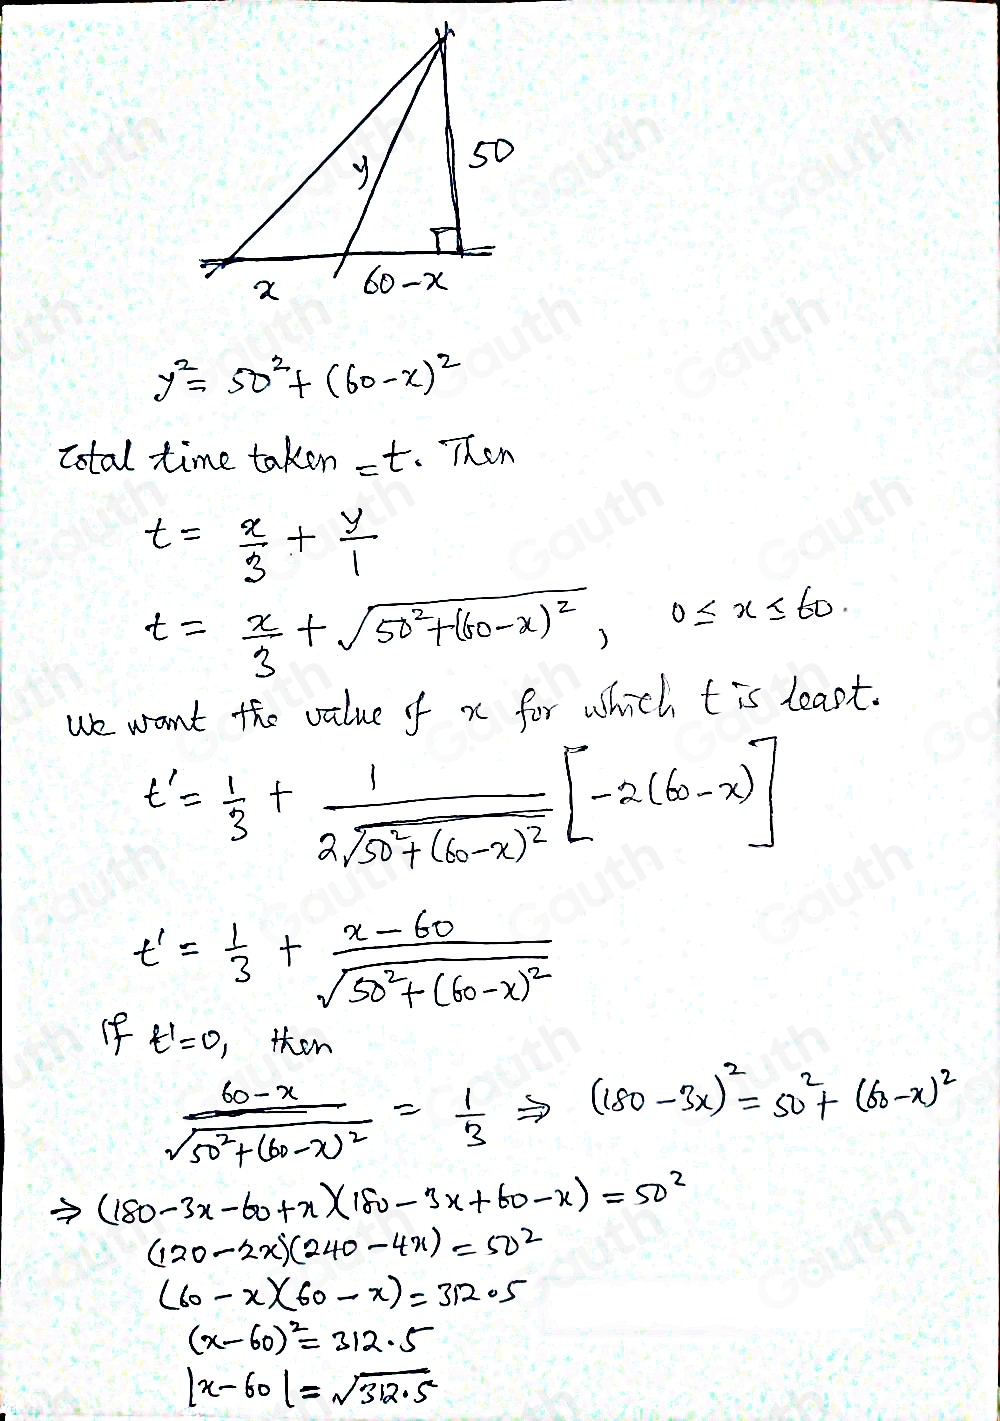 y
50
x
60-x
y²= 50²+(60-x)²
Total time taken = t. Then
t= x/3 + y/1
t= x/3 + √(50²+(60-x)²), 0≤x≤60.
We want the value of x for which t is least.
t'= 1/3 + 1/(2√(50²+(60-x)²)) [-2(60-x)]
t'= 1/3 + (x-60)/√(50²+(60-x)²)
If t'=0, then
(60-x)/√(50²+(60-x)²) = 1/3 ⇒ (180-3x)²=50²+(60-x)²
⇒ (180-3x-60+x)(180-3x+60-x)=50²
(120-2x)(240-4x)=50²
(60-x)(60-x)=312.5
(x-60)²=312.5
|x-60|=√312.5